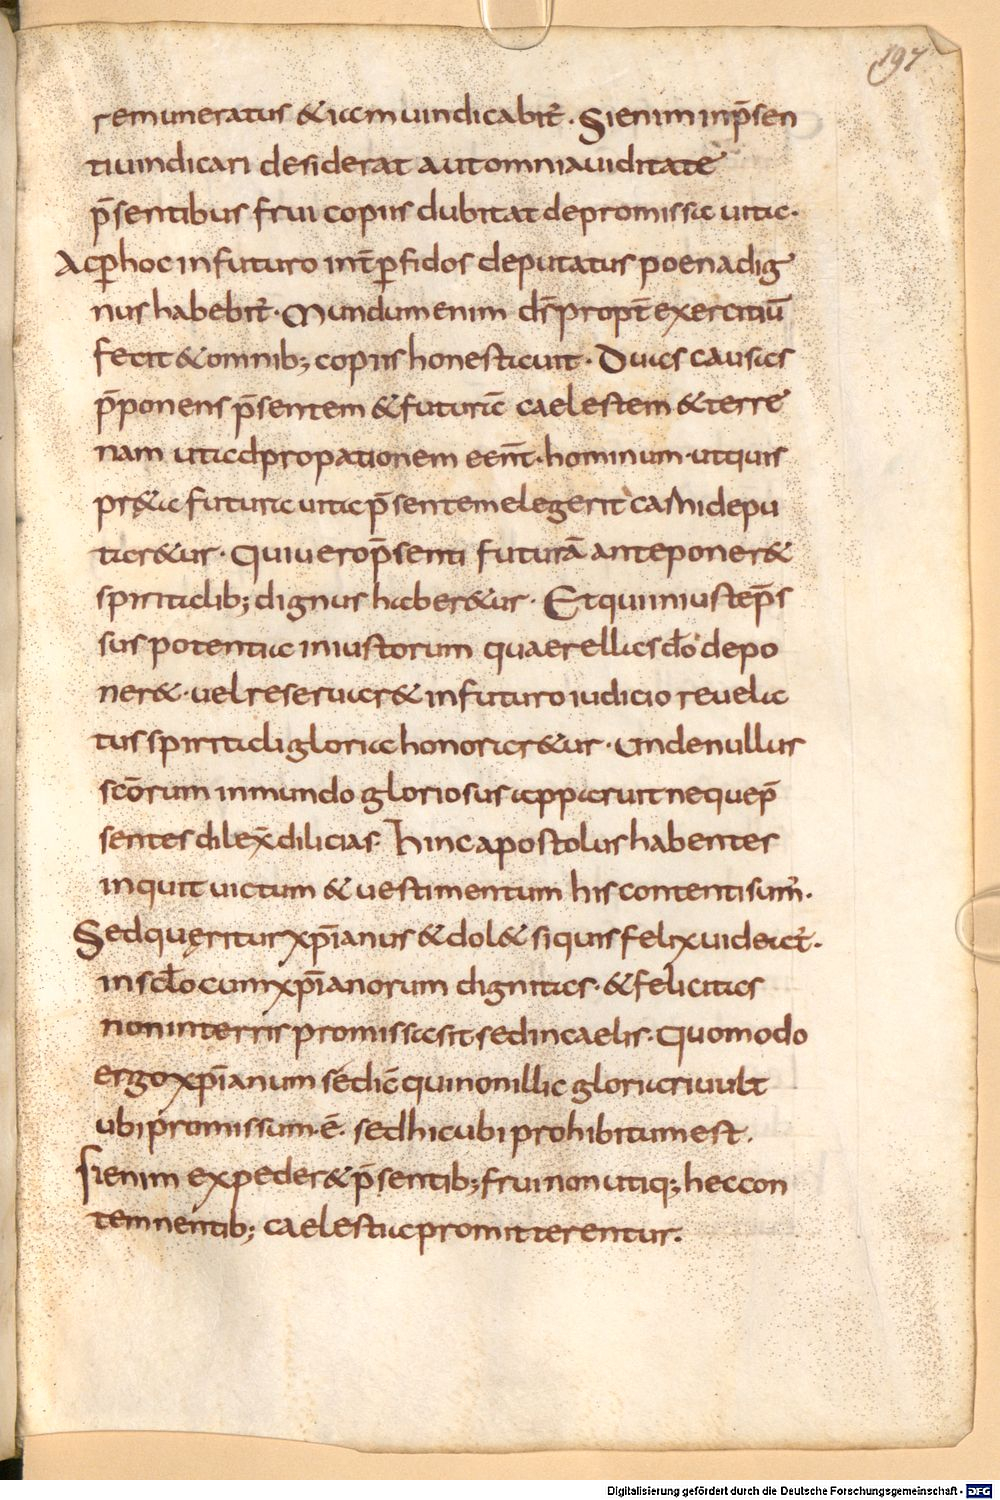 197
remuneratus & iam uindicabit᷑. Si enim in p̄sen
ti uindicari desiderat aut omni auiditate
p̄sentibus frui copiis dubitat de promissa uita.
Ac ꝑ hoc in futuro int̄ ꝑfidos deputatus poena dig
nus habebit᷑. Mundum enim d̄s propt̄ exercitiū
fecit & omnib; copiis honestauit. Duas causas
p̄ponens p̄sentem & futurā caelestem & terre
nam uita ad propationem eēnt. hominum. ut quis
pr&a futura uita p̄sentem elegerit carni depu
tar&ur. Qui uero p̄senti futurā anteponer&
spiritalib; dignus haber&ur. Et qui iniuste p̄s
sus potentia iniustorum quaerellas d̄o depo
ner&. uel reseruar& in futuro iudicio reuela
tus spiritali gloria honorar&ur. Unde nullus
sc̄orum in mundo gloriosus apparuit neque p̄
sentes dilex̄ dilicias. Hinc apostolus habentes
inquit uictum & uestimentum his contenti sum᷒.
Sed quęritur xp̄ianus & dol& si quis felix uideat᷑.
in sc̄lo cum xp̄ianorum dignitas. & felicitas
non in terris promissa sit sed in caelis. Quomodo
ergo xp̄ianum se dicē qui non illic gloriari uult
ubi promissum. ē. sed hic ubi prohibitum est.
Si enim expeder& p̄sentib; frui non utiq; hec con
temnentib; caelestia promitterentur.
Digitalisierung gefördert durch die Deutsche Forschungsgemeinschaft - DFG